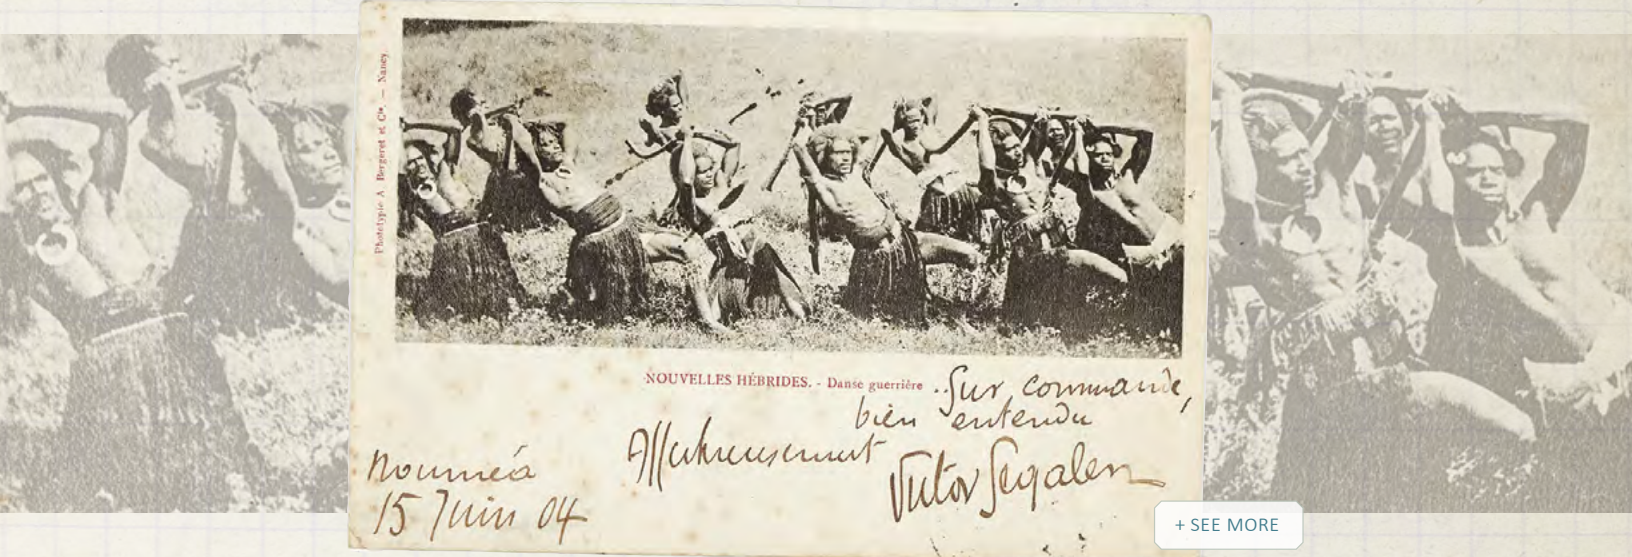 Phototypie A Bergeret et Cie. — Nancy
NOUVELLES HÉBRIDES. - Danse guerrière
. Sur commande,
bien entendu
Affectueusement
Victor Segalen
Nouméa
15 Juin 04
+ SEE MORE